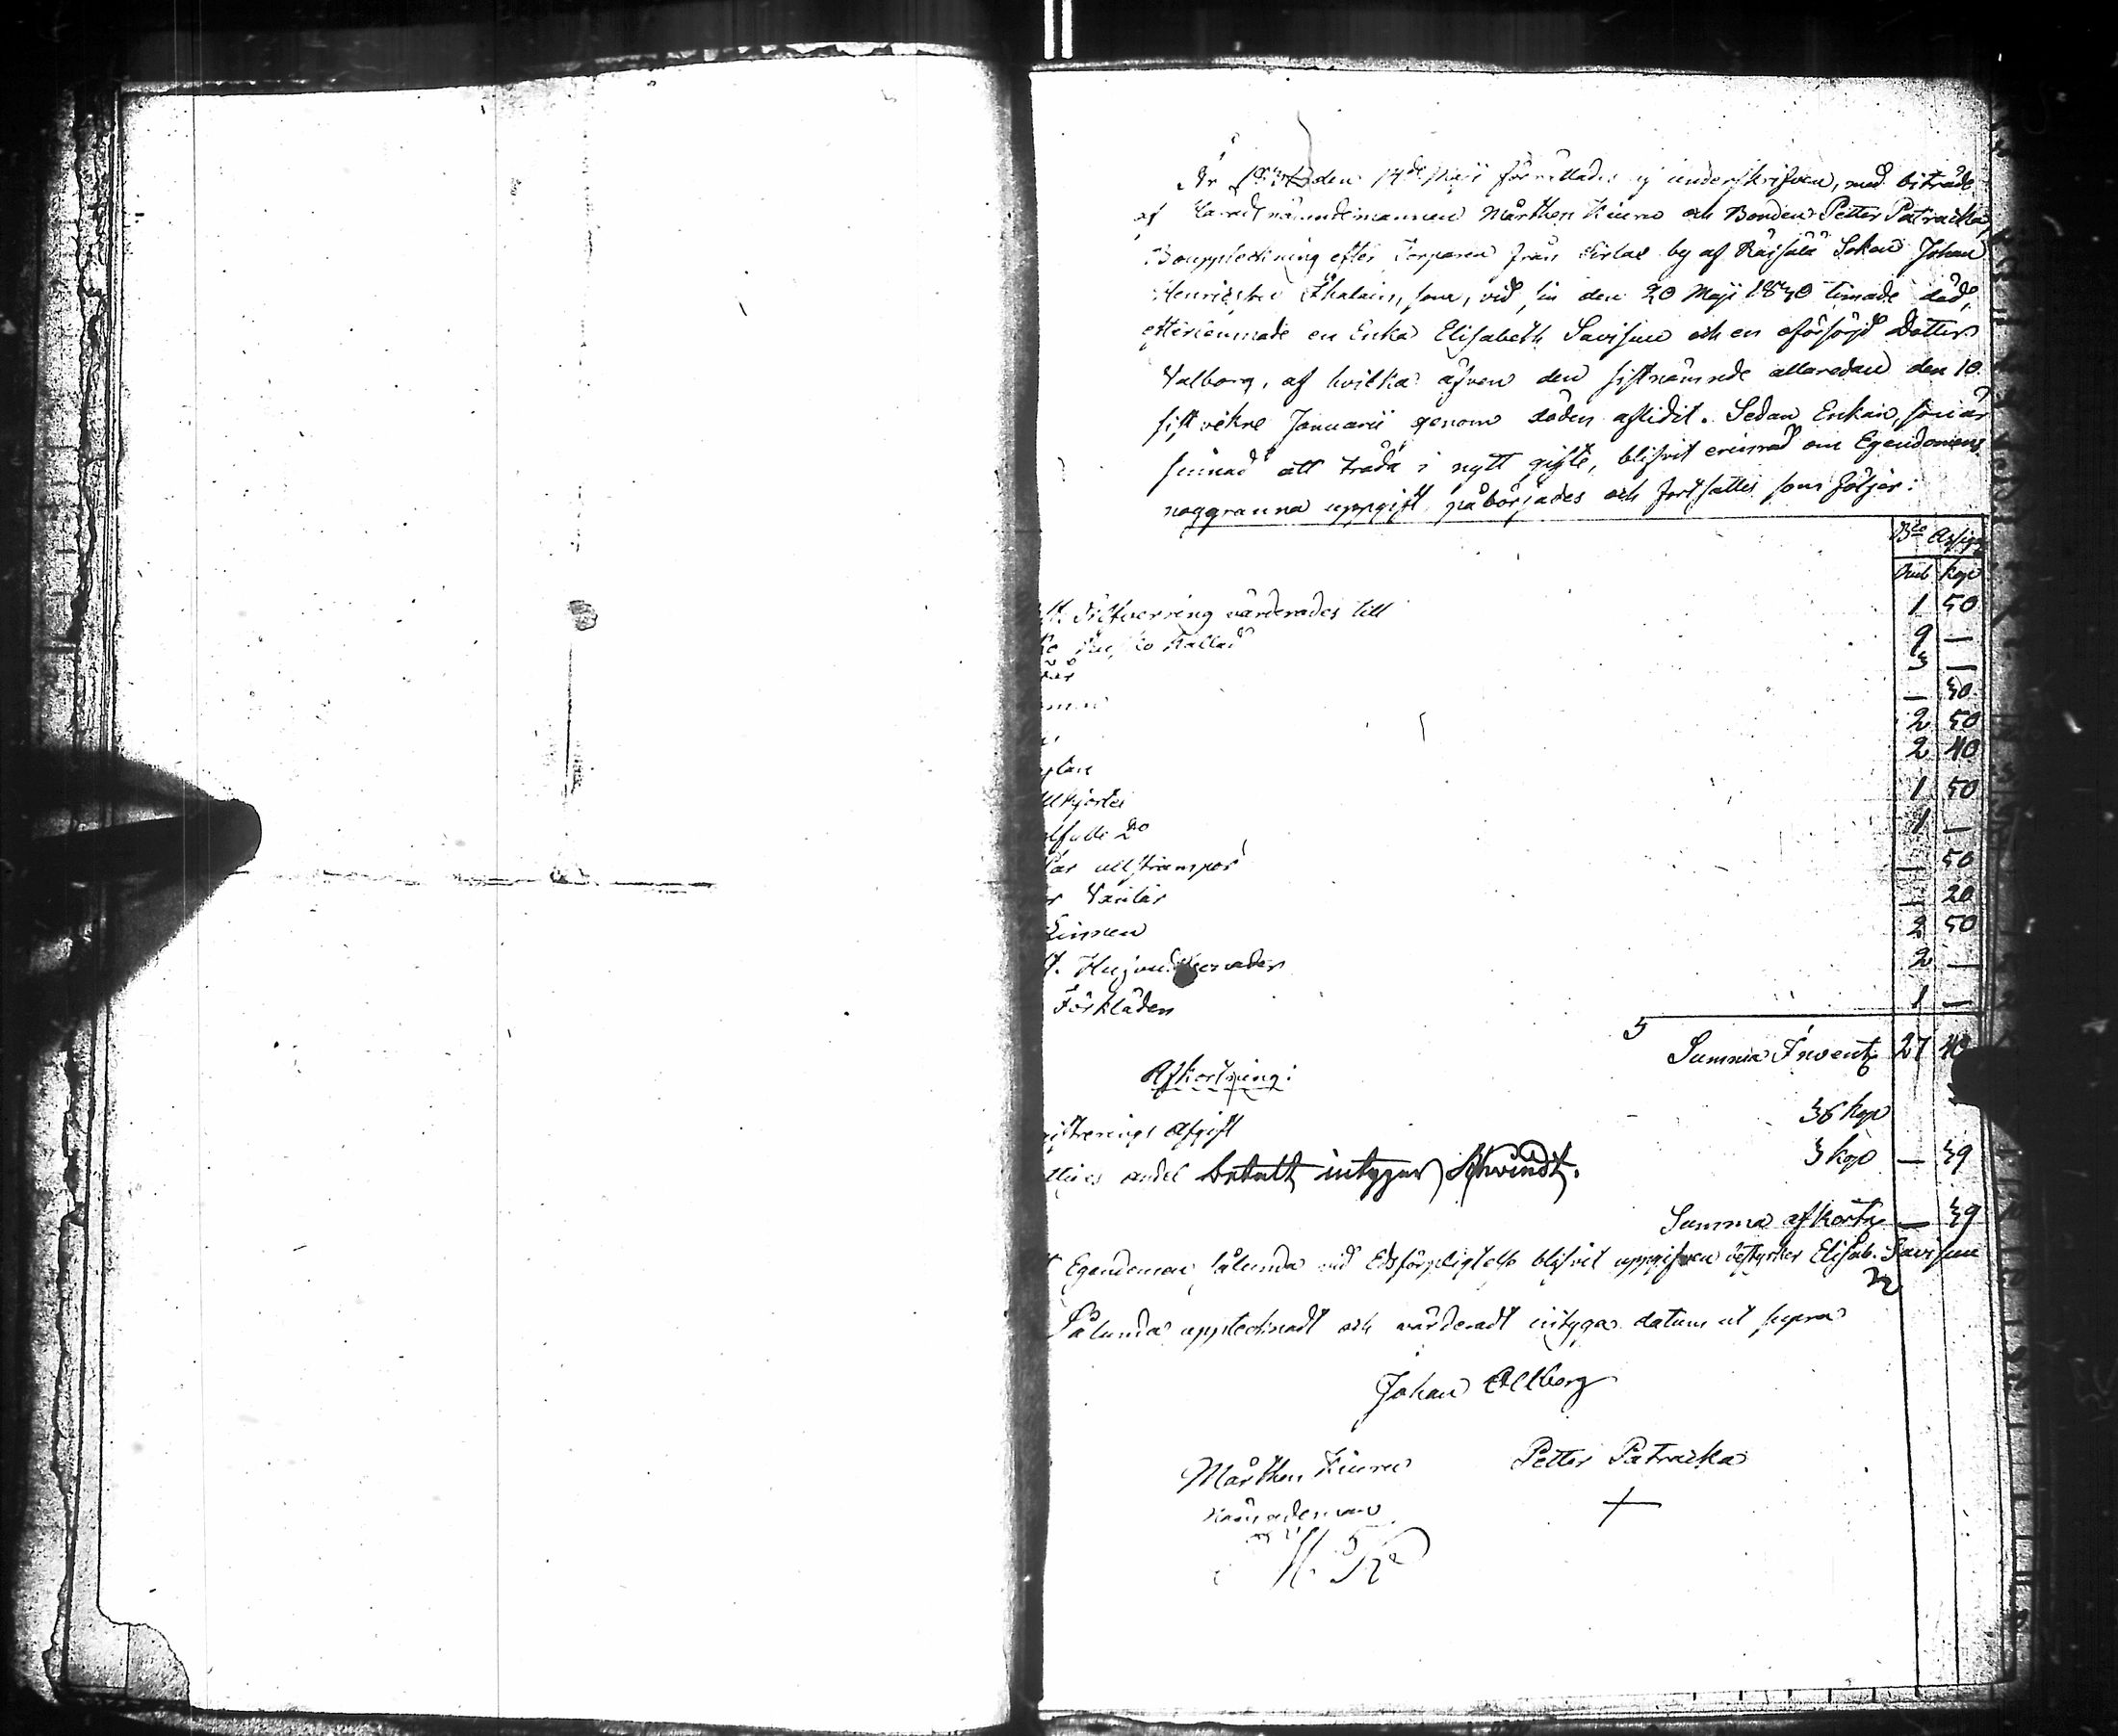 År den 14de Maji förrättades af underskrifven, med biträde
af Häradsnämndemannen Mårthen Kiuru och Bonden Petter Patracka,
Bouppteckning efter Torparen från Sirlax by af Räisälä Sokn Johan
Henricsson som, vid sin den 20 Maji 1830 timade död,
efterlemnade en Enka Elisabeth Savisuu och en oförsörjd Dotter
Valborg, af hvilka äfven den sistnämnde allaredan den 10
sistvekne Januarii genom döden aflidit. Sedan Enkan, som är
sinnad att träda i nytt gifte, blifvit erinrad om Egendomens
noggranna uppgift, påbörjades och fortsattes som följer:
Bco Assign
Rub kop
st. Silfverring värderades till 1 50
Ko kallad 9 —
3 —
— 30
2 50
2 40
kjortel 1 50
do 1 —
Par ullstrumpor — 50
r Vantar — 20
Linnen 2 50
st. Hufvud 2 —
Förkläden 1 —
Summa Invent. 27 40
Afkortning:
istrerings Afgift 36 kop
andel betalt, intygar Schvindt. 3 kop — 39
Summa afkortn — 39
t Egendomen sålunda vid Edsförpligtelse blifvit uppgifven Elisab. Savisuu
Sålunda upptecknadt och värderadt intygar datum ut supra
Johan Ahlberg
Mårthen Kiuru Petter Patracka
nämndeman +